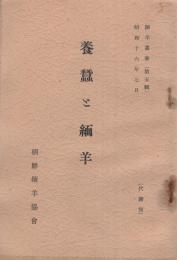 緬羊叢書(第五輯)
昭和十六年七月
養蠶と緬羊
(代謄寫)
朝鮮緬羊協會